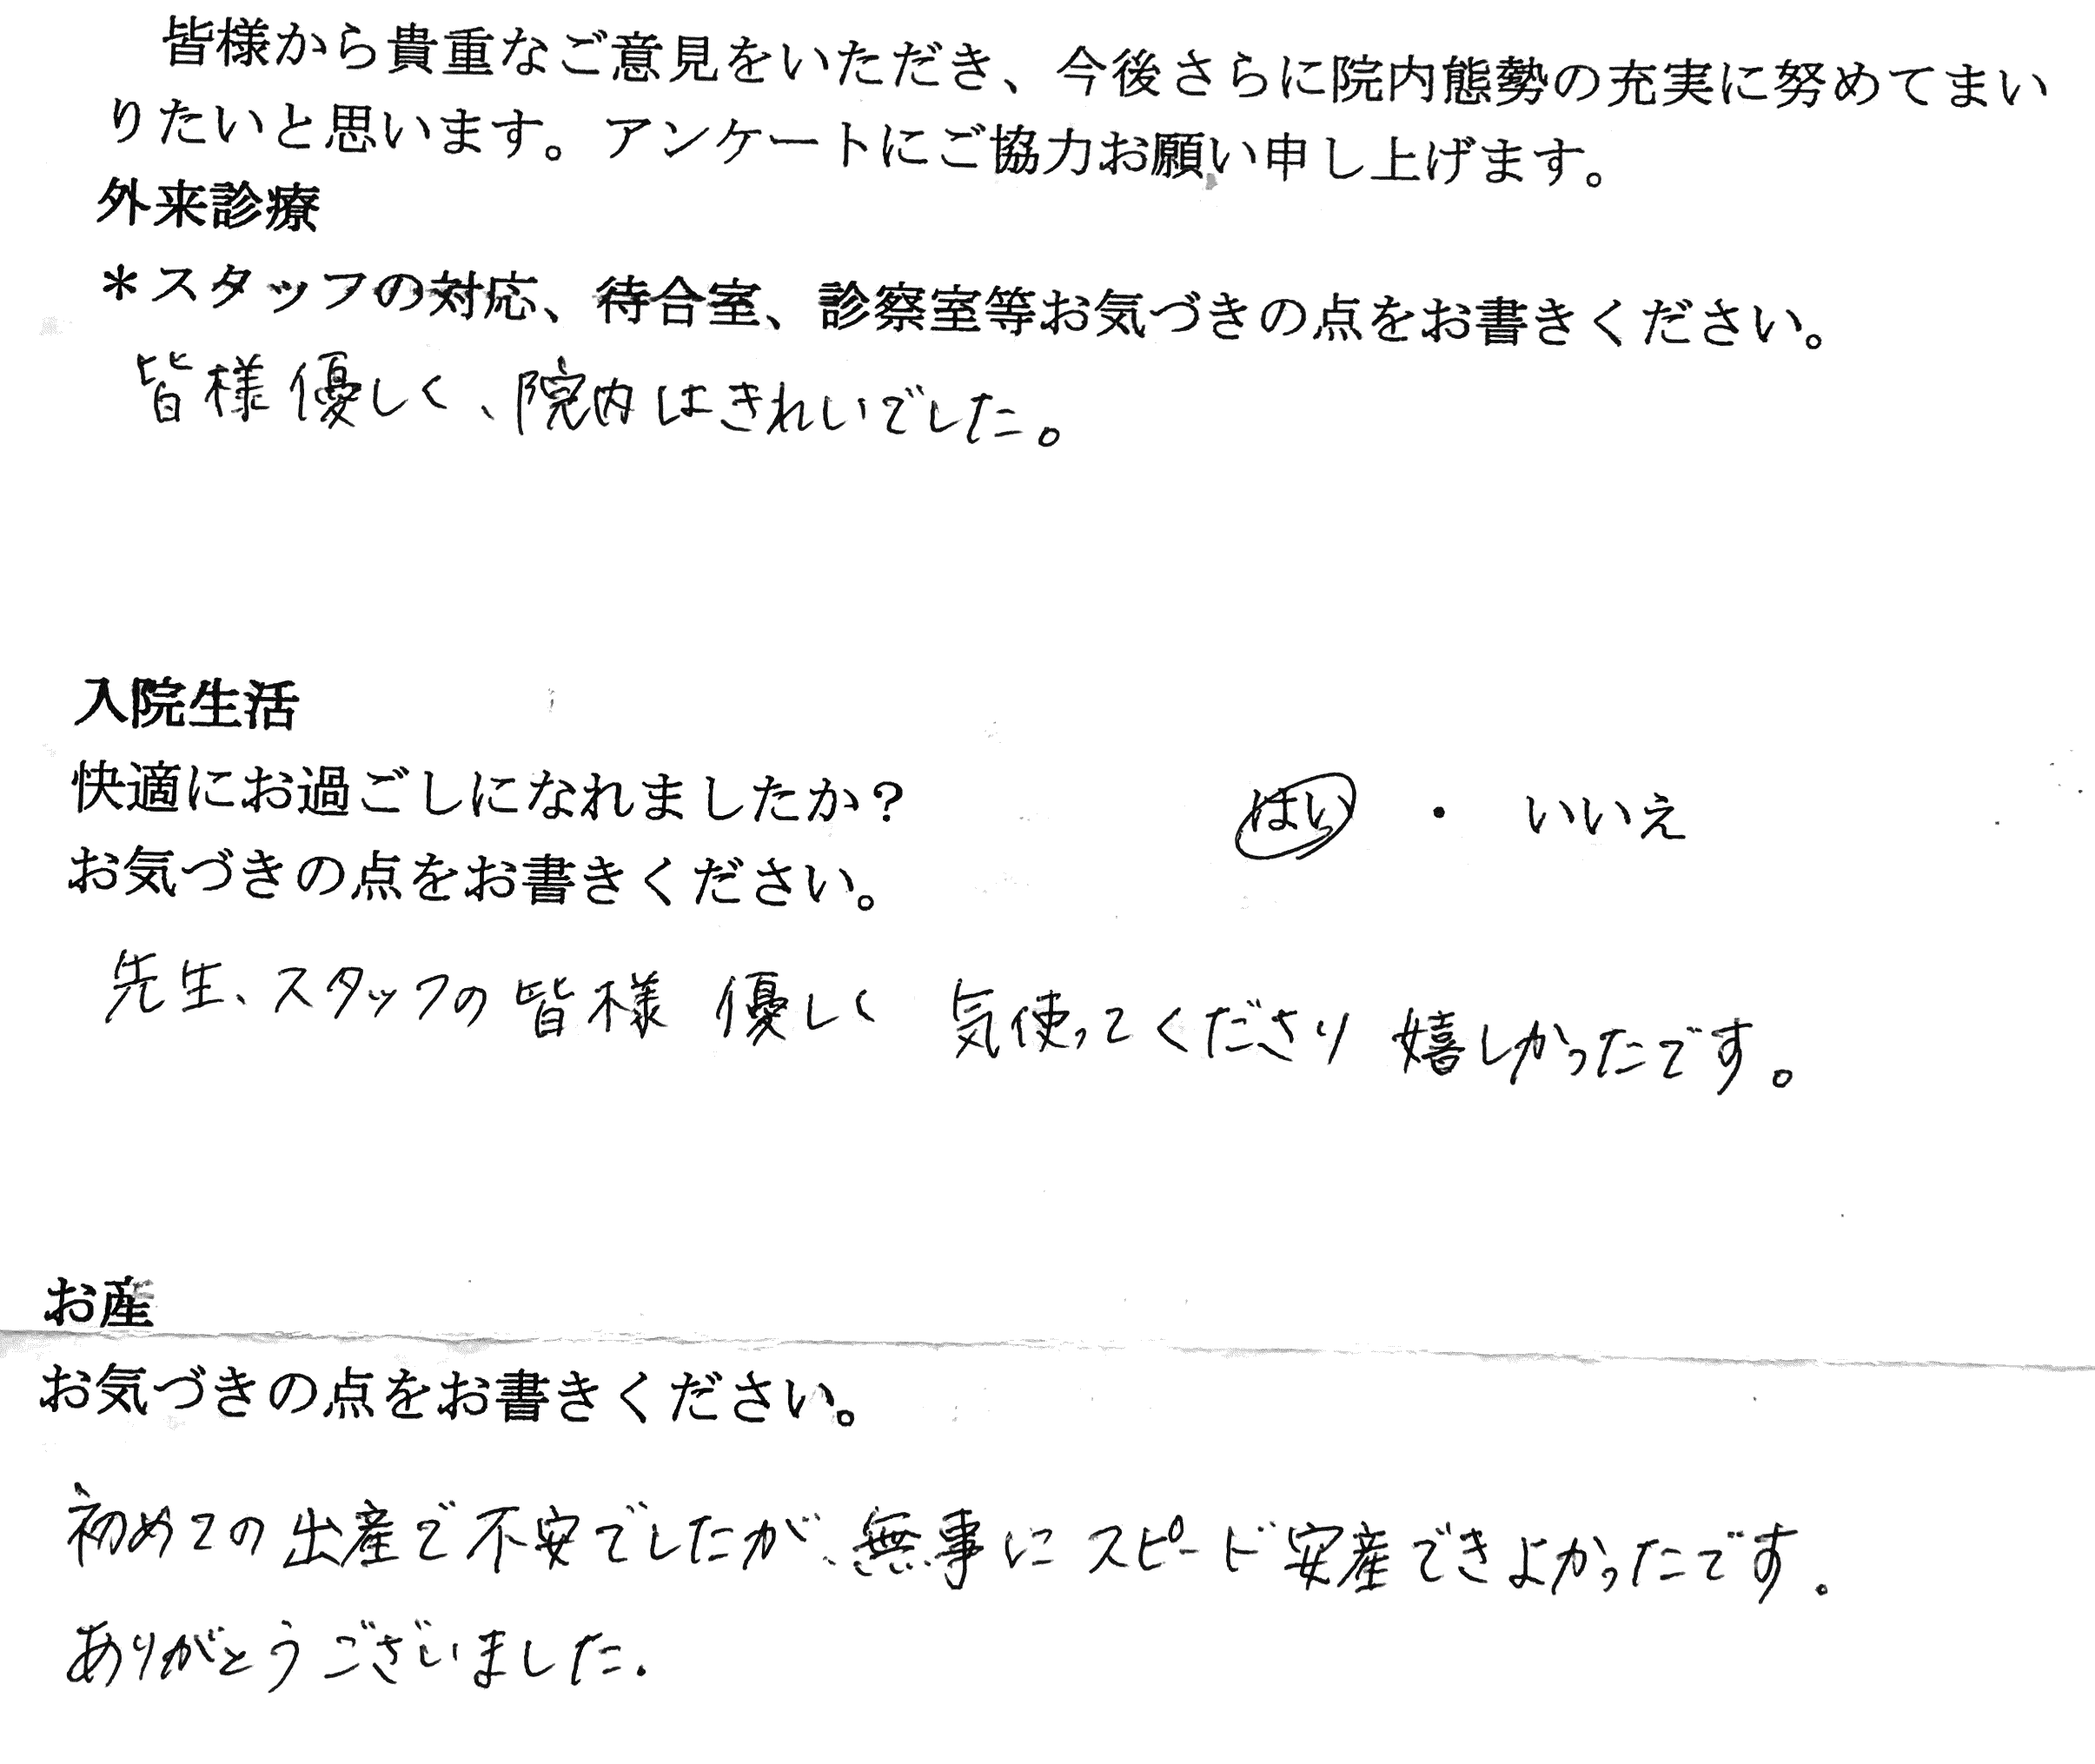 皆様から貴重なご意見をいただき、今後さらに院内態勢の充実に努めてまい
りたいと思います。アンケートにご協力お願い申し上げます。
外来診療
＊スタッフの対応、待合室、診察室等お気づきの点をお書きください。
皆様優しく、院内はきれいでした。
入院生活
快適にお過ごしになれましたか？ はい ・ いいえ
お気づきの点をお書きください。
先生、スタッフの皆様 優しく 気使ってくださり 嬉しかったです。
お産
お気づきの点をお書きください。
初めての出産で不安でしたが、無事にスピード安産できよかったです。
ありがとうございました.